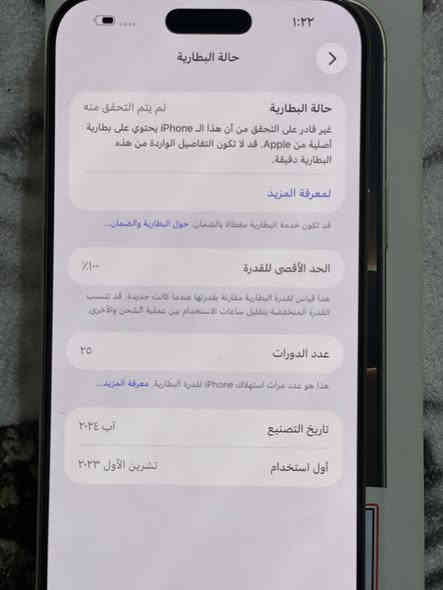 ١:٢٢
حالة البطارية
حالة البطارية
لم يتم التحقق منه
غير قادر على التحقق من أن هذا الـ iPhone يحتوي على بطارية
أصلية من Apple. قد لا تكون التفاصيل الواردة من هذه
البطارية دقيقة.
لمعرفة المزيد
قد تكون خدمة البطارية مغطاة بالضمان. حول البطارية والضمان...
الحد الأقصى للقدرة
١٠٠٪
هذا قياس لقدرة البطارية مقارنة بقدرتها عندما كانت جديدة. قد تتسبب
القدرة المنخفضة بتقليل ساعات الاستخدام بين عملية الشحن والأخرى.
عدد الدورات
٢٥
هذا هو عدد مرات استهلاك iPhone لقدرة البطارية. معرفة المزيد...
تاريخ التصنيع
آب ٢٠٢٤
أول استخدام
تشرين الأول ٢٠٢٣